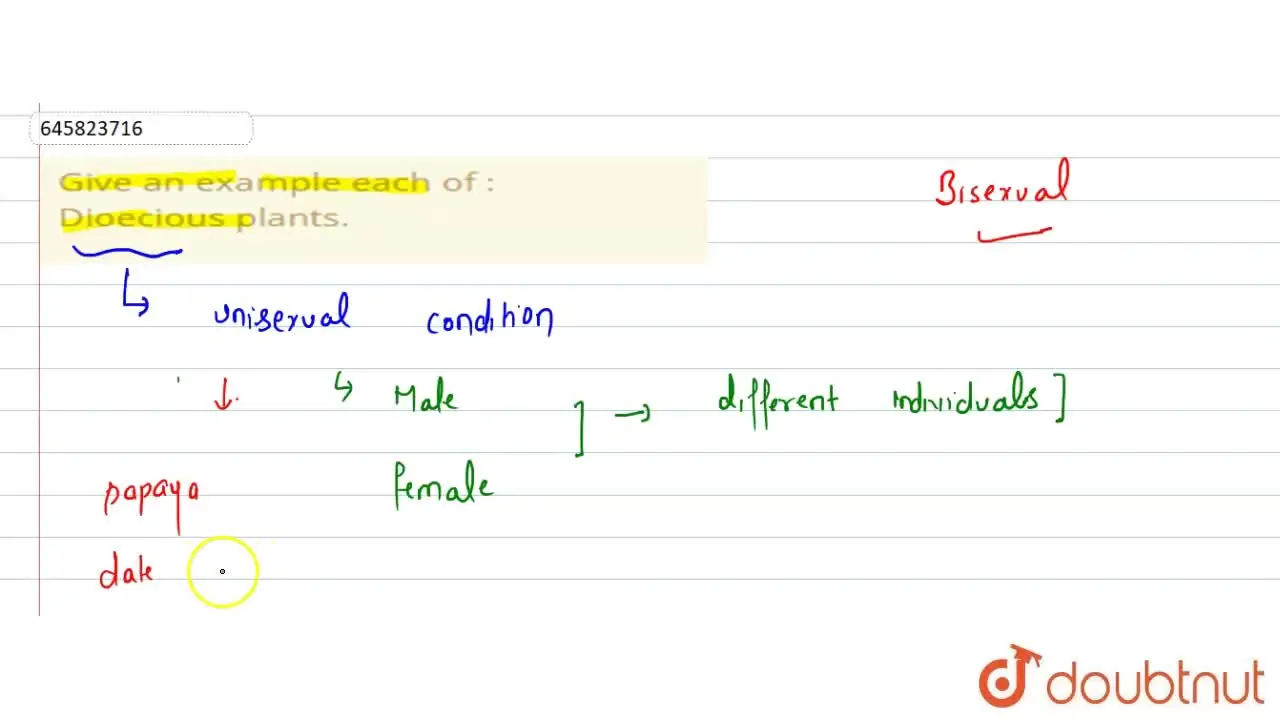 645823716
Give an example each of :
Dioecious plants.
Bisexual
unisexual condition
Male
different individuals]
female
papaya
date
doubtnut